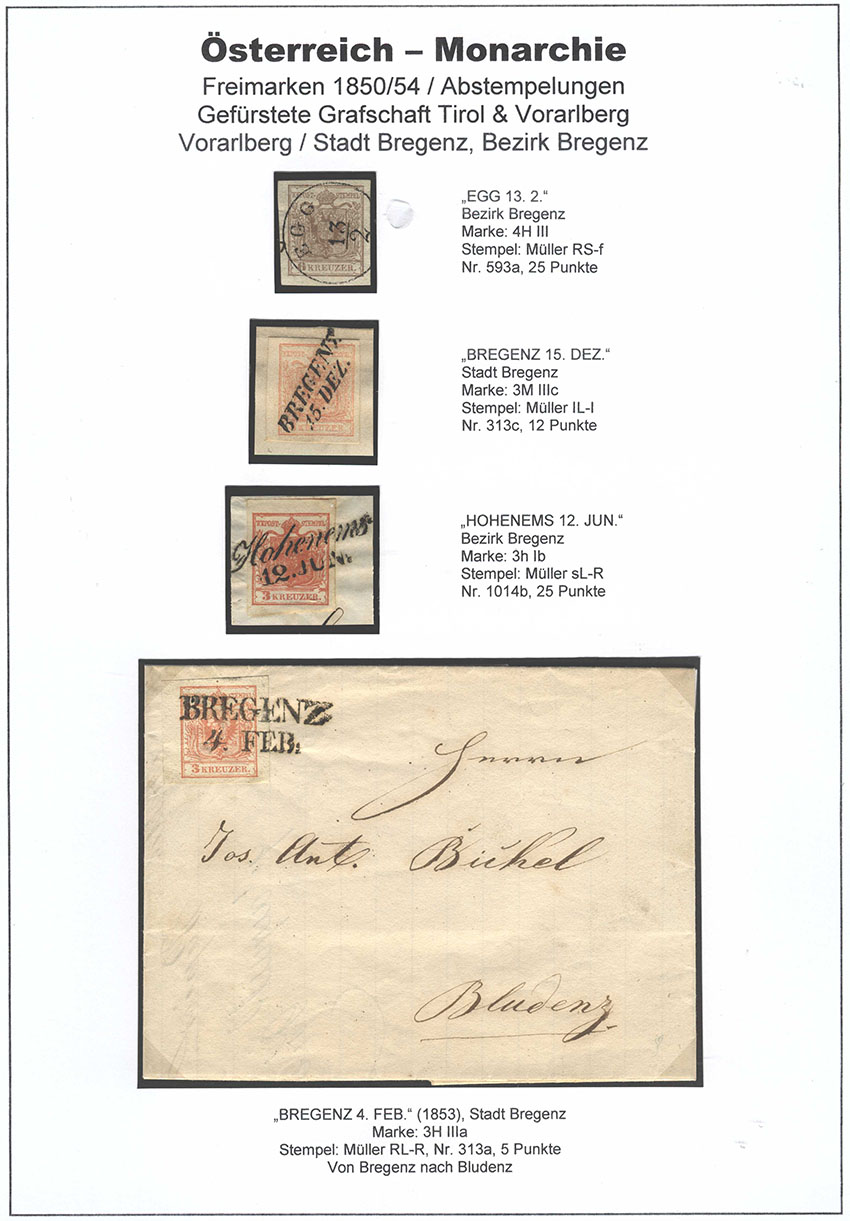 Österreich – Monarchie
Freimarken 1850/54 / Abstempelungen
Gefürstete Grafschaft Tirol & Vorarlberg
Vorarlberg / Stadt Bregenz, Bezirk Bregenz
EGG
13
2
KREUZER.
„EGG 13. 2.“
Bezirk Bregenz
Marke: 4H III
Stempel: Müller RS-f
Nr. 593a, 25 Punkte
BREGENZ
15. DEZ.
„BREGENZ 15. DEZ.“
Stadt Bregenz
Marke: 3M IIIc
Stempel: Müller IL-I
Nr. 313c, 12 Punkte
STEMPEL
Hohenems
12. JUN.
3 KREUZER.
„HOHENEMS 12. JUN.“
Bezirk Bregenz
Marke: 3h Ib
Stempel: Müller sL-R
Nr. 1014b, 25 Punkte
BREGENZ
4. FEB.
3 KREUZER.
Herrn
Jos. Ant. Bickel
Bludenz
„BREGENZ 4. FEB.“ (1853), Stadt Bregenz
Marke: 3H IIIa
Stempel: Müller RL-R, Nr. 313a, 5 Punkte
Von Bregenz nach Bludenz